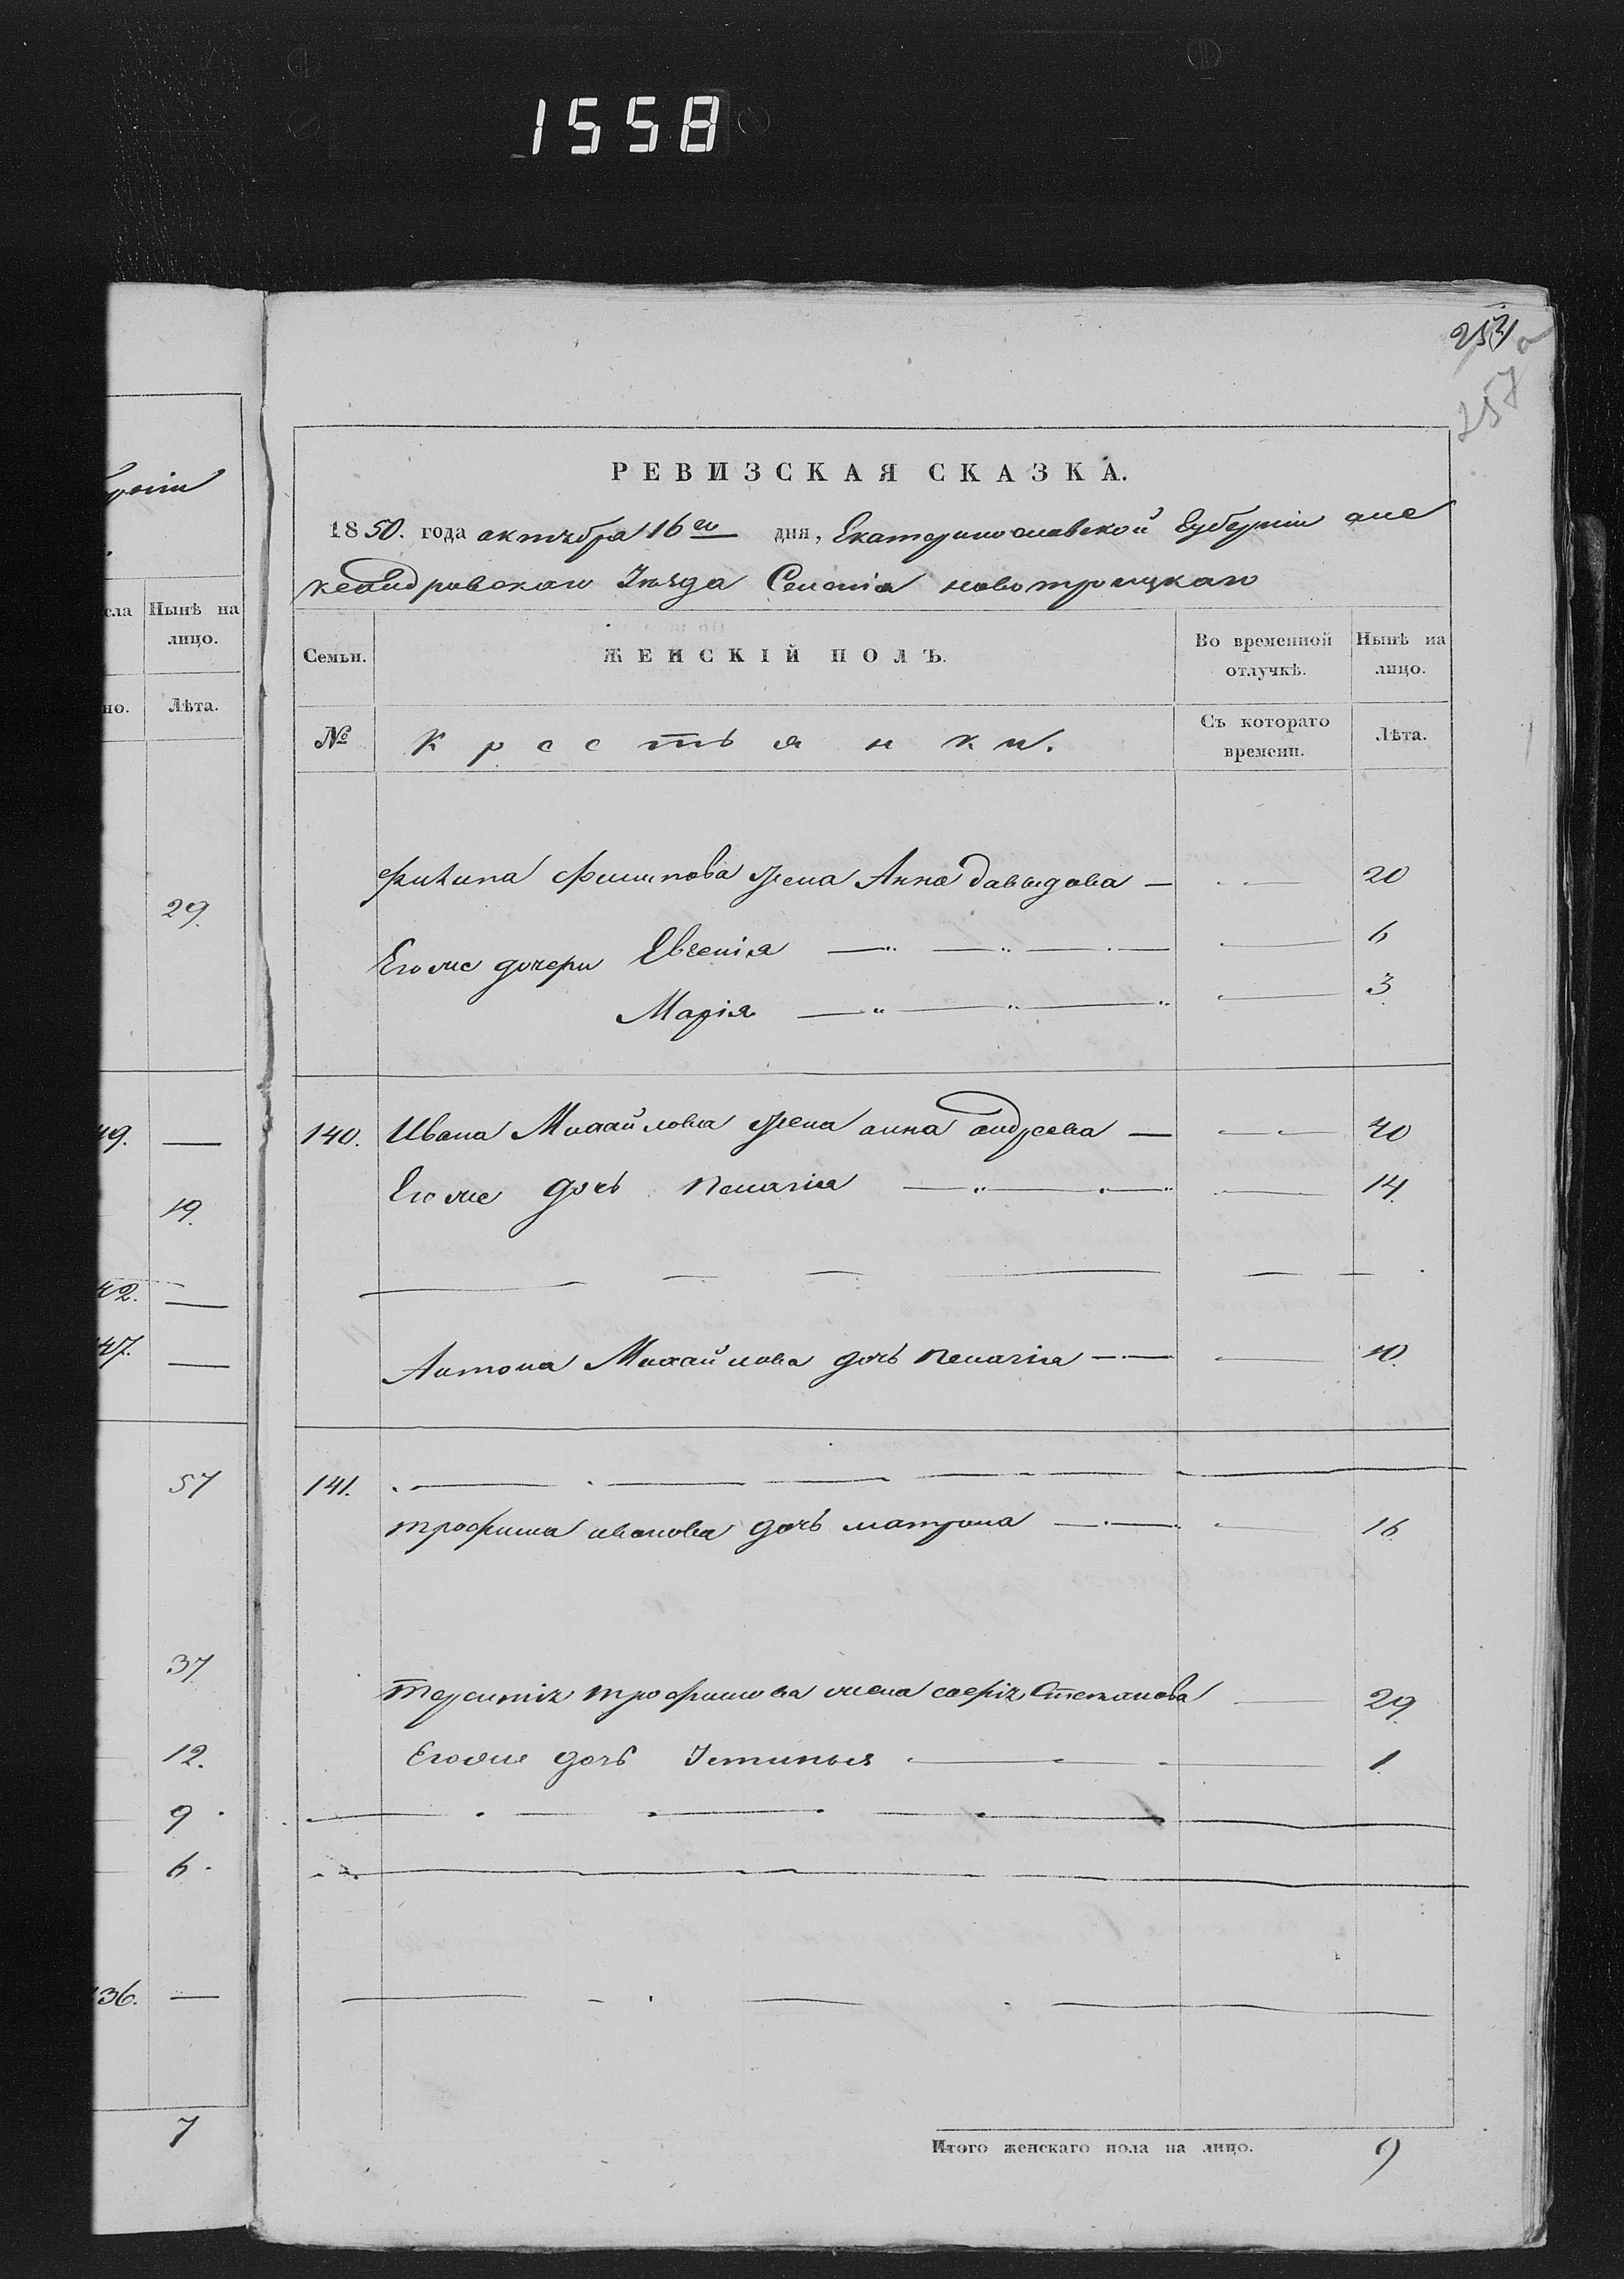 1558
257
РЕВИЗСКАЯ СКАЗКА.
1850. года октября 16го дня, Екатеринославской Губерніи але
ксандровскаго Уезда Селенія новотроицкаго
сла Нынѣ на лицо.
но. Лѣта.
29.
49. —
19.
42. —
47. —
57
37
12.
9.
6.
136. —
7
Семьи. ЖЕНСКІЙ ПОЛЪ. Во временной отлучкѣ. Нынѣ на лицо.
№ Крестьянки. Съ котораго времени. Лѣта.
Филипова жена Анна давыдова — 20
Его же дочери Евгенія — 6
Марія — 3
140. Ивана Михайлова жена анна андреева — 40
Его же дочь Пелагія — 14.
Антона Михайлова дочь Пелагія — 10.
141.
трофима иванова дочь матрона — 16
Терентія трофимова жена софія Степанова 29
Его же дочь Устинья — 1
Итого женскаго пола на лицо. 9